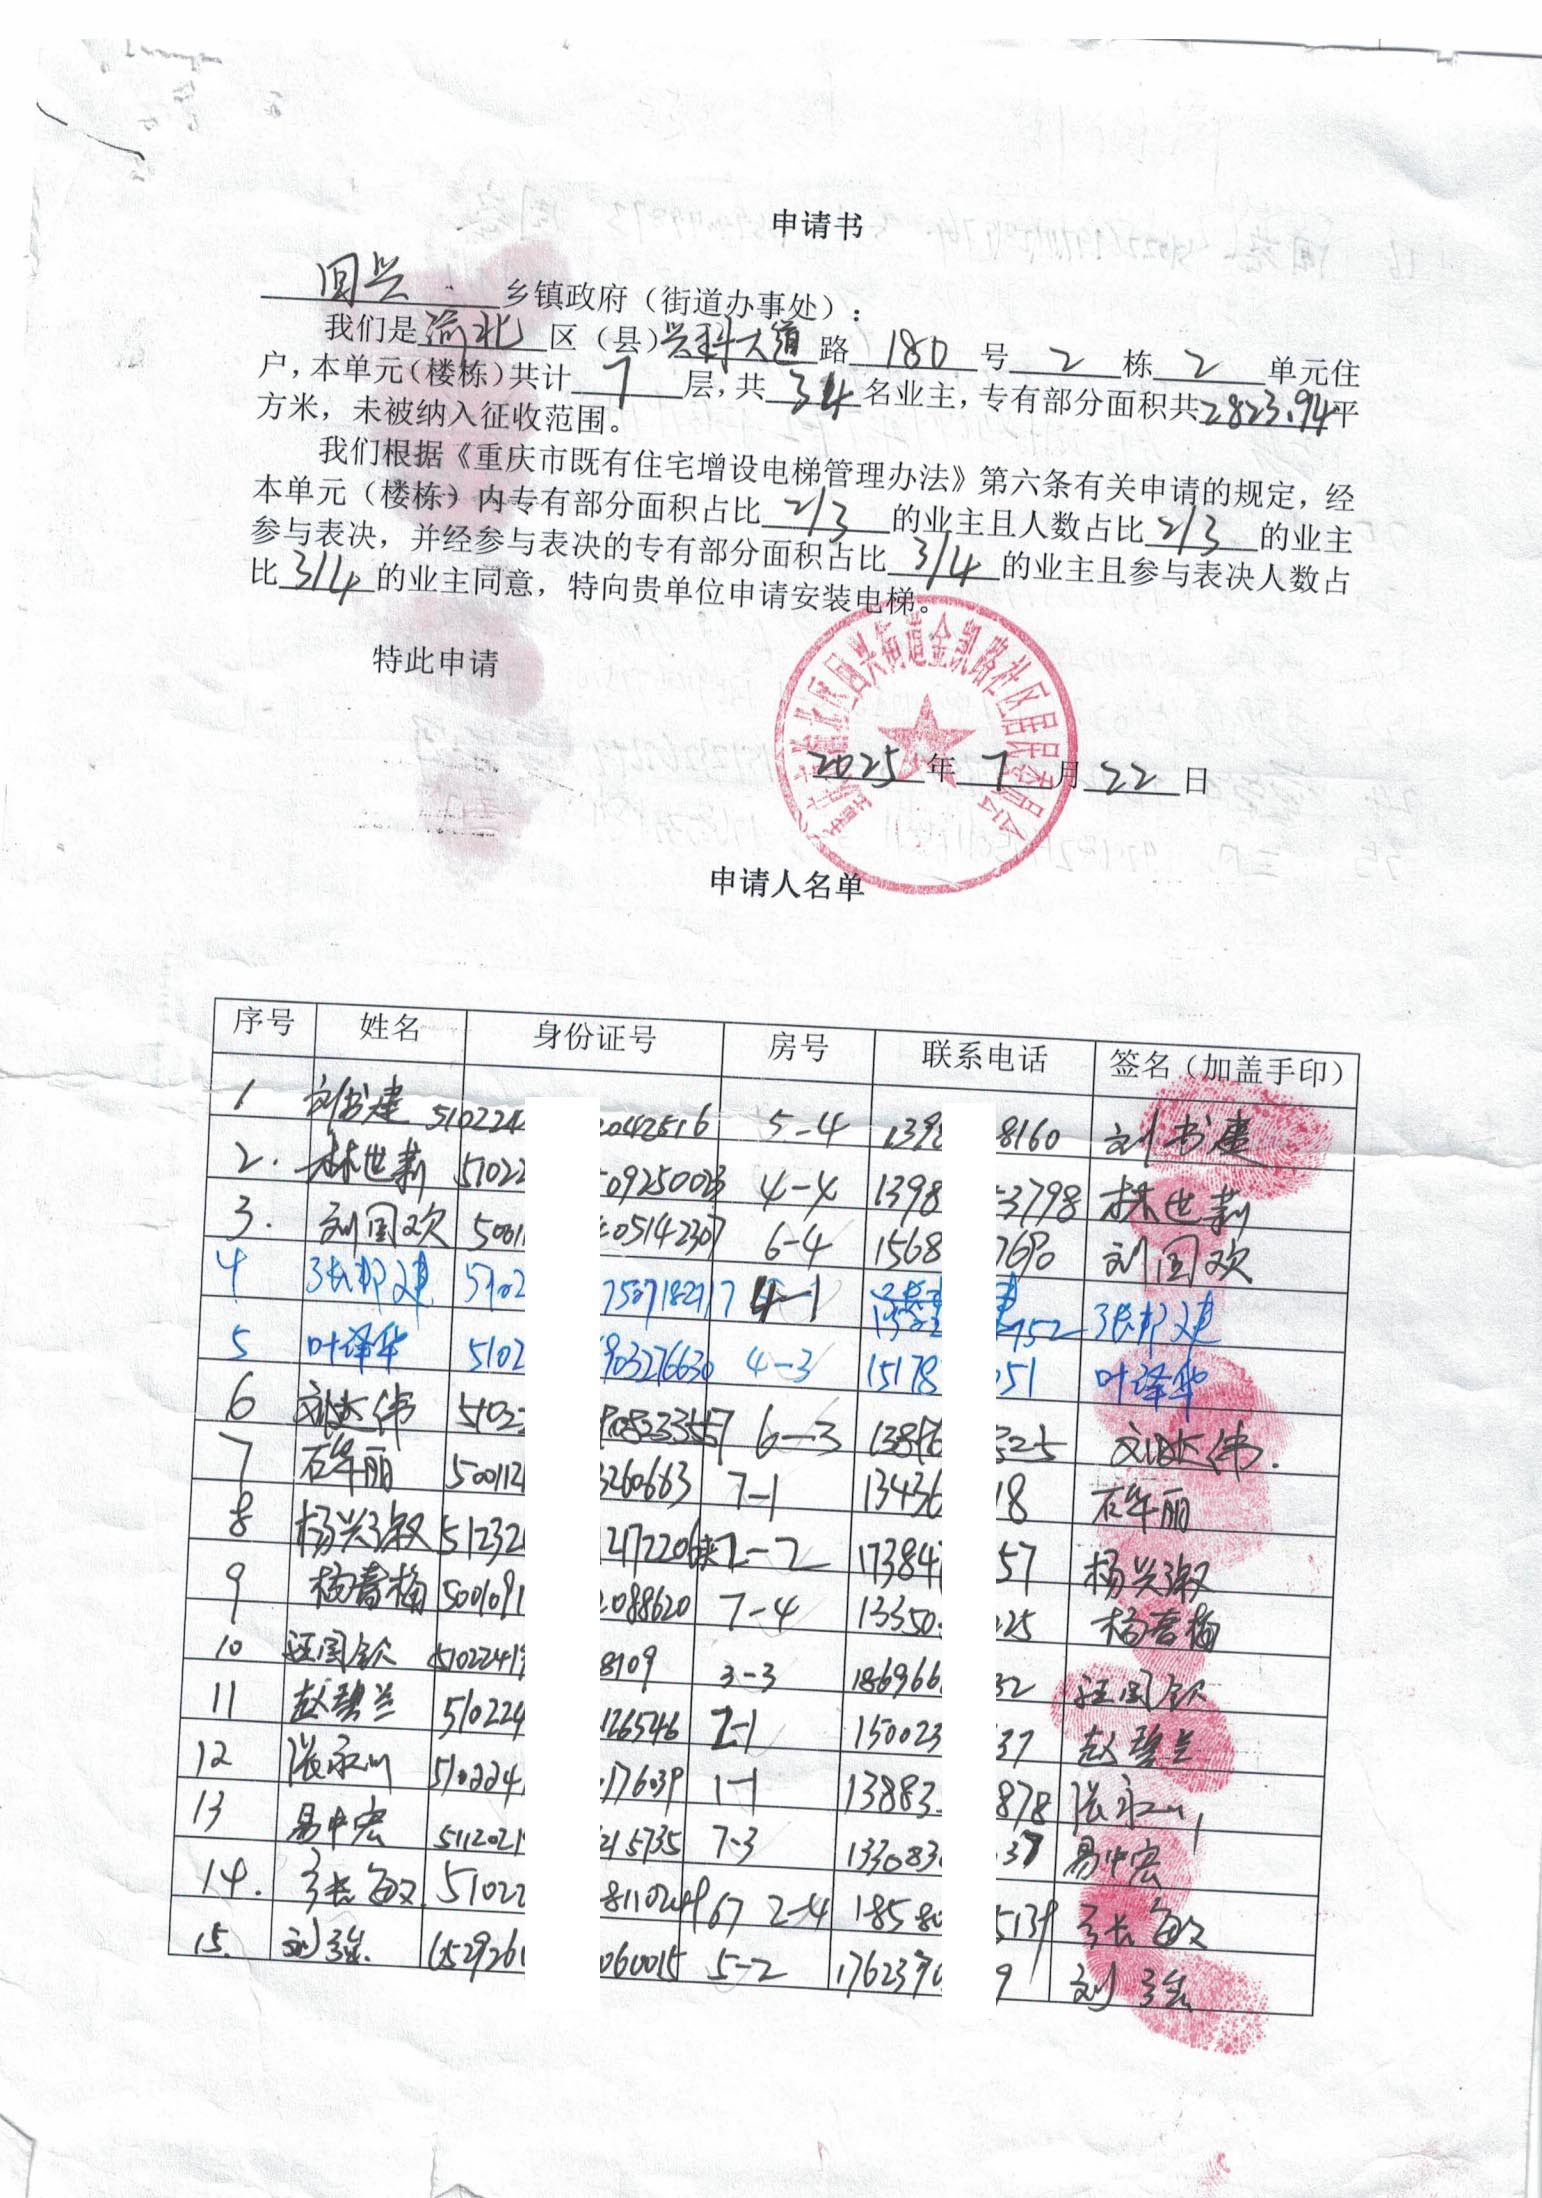 申请书
回兴 乡镇政府（街道办事处）：
我们是渝北区（县）兴科大道路 180 号 2 栋 2 单元住
户，本单元（楼栋）共计 7 层，共 34 名业主，专有部分面积共2823.94平
方米，未被纳入征收范围。
我们根据《重庆市既有住宅增设电梯管理办法》第六条有关申请的规定，经
本单元（楼栋）内专有部分面积占比 2/3 的业主且人数占比 2/3 的业主
参与表决，并经参与表决的专有部分面积占比 3/4 的业主且参与表决人数占
比 3/4 的业主同意，特向贵单位申请安装电梯。
特此申请
重庆市渝北区回兴街道金凯路社区居民委员会
2025 年 7 月 22 日
申请人名单
序号 姓名 身份证号 房号 联系电话 签名（加盖手印）
1 刘书建 510224 2042516 5-4 1398 8160 刘书建
2. 林世莉 51022 0925002 4-4 1398 3798 林世莉
3. 刘国欢 5001 05142307 6-4 1568 7690 刘国欢
4 张邦建 5102 4-1 752 张邦建
5 叶泽华 5102 903276630 4-3 15178 051 叶泽华
6 伟 5102 6-3 1387 525 伟.
7 石华丽 500112 3260663 7-1 13436 18 石华丽
8 杨兴淑 51232 -2 17384 57 杨兴淑
9 杨春梅 5001091 2088620 7-4 13350 025 杨春梅
10 汪国 51022419 8109 3-3 186966 32 汪国
11 赵碧兰 510224 126546 2-1 150023 37 赵碧兰
12 张永 510224 176039 1-1 13883 878 张永
13 易中宏 5112021 215735 7-3 133083 37 易中宏
14. 张敏 51022 2-4 1858 5139 张敏
15. 刘强 652926 060015 5-2 176239 9 刘强